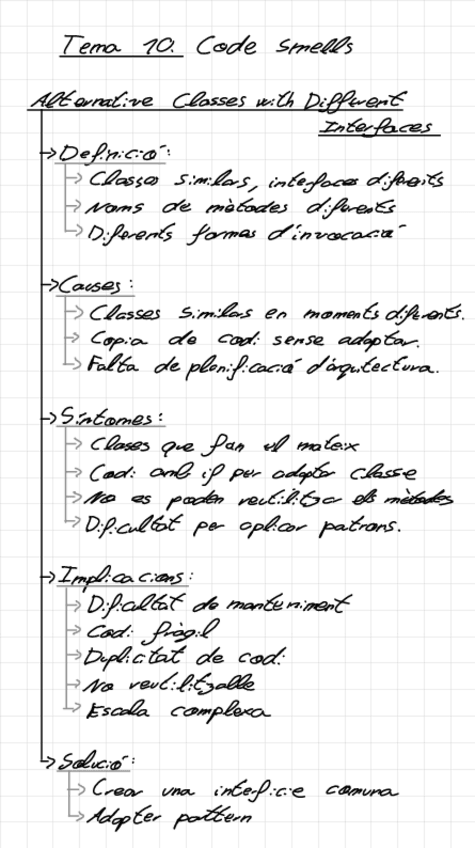 Tema 10. Code Smells
Alternative Classes with Different
Interfaces
→ Definició:
→ Classes similars, interfaces diferents
→ Noms de mètodes diferents
→ Diferents formes d'invocació
→ Causes:
→ Classes similars en moments diferents.
→ Copia de codi sense adaptar.
→ Falta de planificació d'arquitectura.
→ Síntomes:
→ Clases que fan el mateix
→ Codi amb if per adaptar classe
→ No es poden reutilitzar els mètodes
→ Dificultat per aplicar patrons.
→ Implicacions:
→ Dificultat de manteniment
→ Codi fràgil
→ Duplicitat de codi
→ No reutilitzable
→ Escala complexa
→ Solució:
→ Crear una interfície comuna
→ Adapter pattern